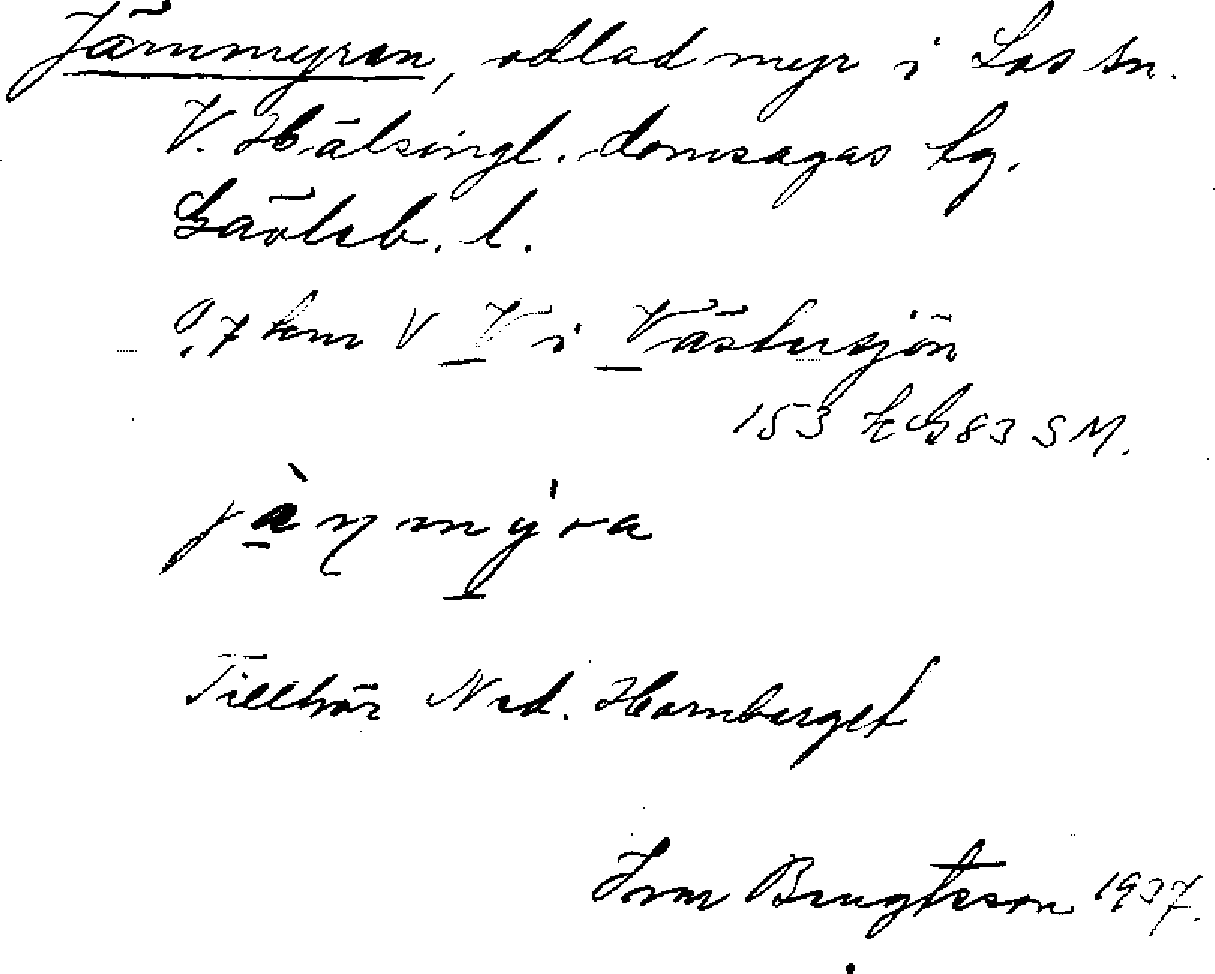 Järnmyren, odlad myr i Los sn.
V. Hälsingl. domsagas tg.
Gävleb. l.
0,7 km V V i Västersjön
153 86 83 SM.
jànmýra
Tillhör Ned. Hornberget
Bengtsson 1937.